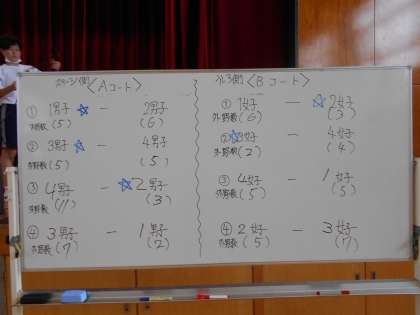 〈Aコート〉
① 1男子 ☆ － 2男子
外野数(5) (6)
② 3男子 ☆ － 4男子
外野数(5) (5)
③ 4男子 － ☆2男子
外野数(11) (3)
④ 3男子 － 1男子
外野数(7) (2)
〈Bコート〉
① 1女子 － ☆2女子
外野数(6) (3)
② ☆3女子 － 4女子
外野数(2) (4)
③ 4女子 － 1女子
外野数(5) (5)
④ 2女子 － 3女子
外野数(5) (7)